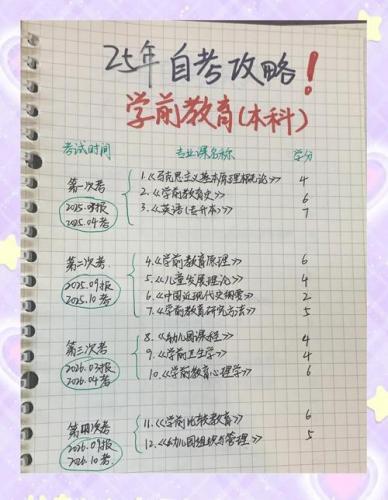 25年自考攻略!
学前教育(本科)
考试时间 专业课名称 学分
第一次考
2025.03报
2025.04考
1.《马克思主义基本原理概论》 4
2.《学前教育史》 6
3.《英语(专升本)》 7
第二次考
2025.09报
2025.10考
4.《学前教育原理》 6
5.《儿童发展理论》 4
6.《中国近现代史纲要》 2
7.《学前教育研究方法》 5
第三次考
2026.03报
2026.04考
8.《幼儿园课程》 4
9.《学前卫生学》 4
10.《学前教育心理学》 6
第四次考
2026.09报
2026.10考
11.《学前比较教育》 6
12.《幼儿园组织与管理》 5